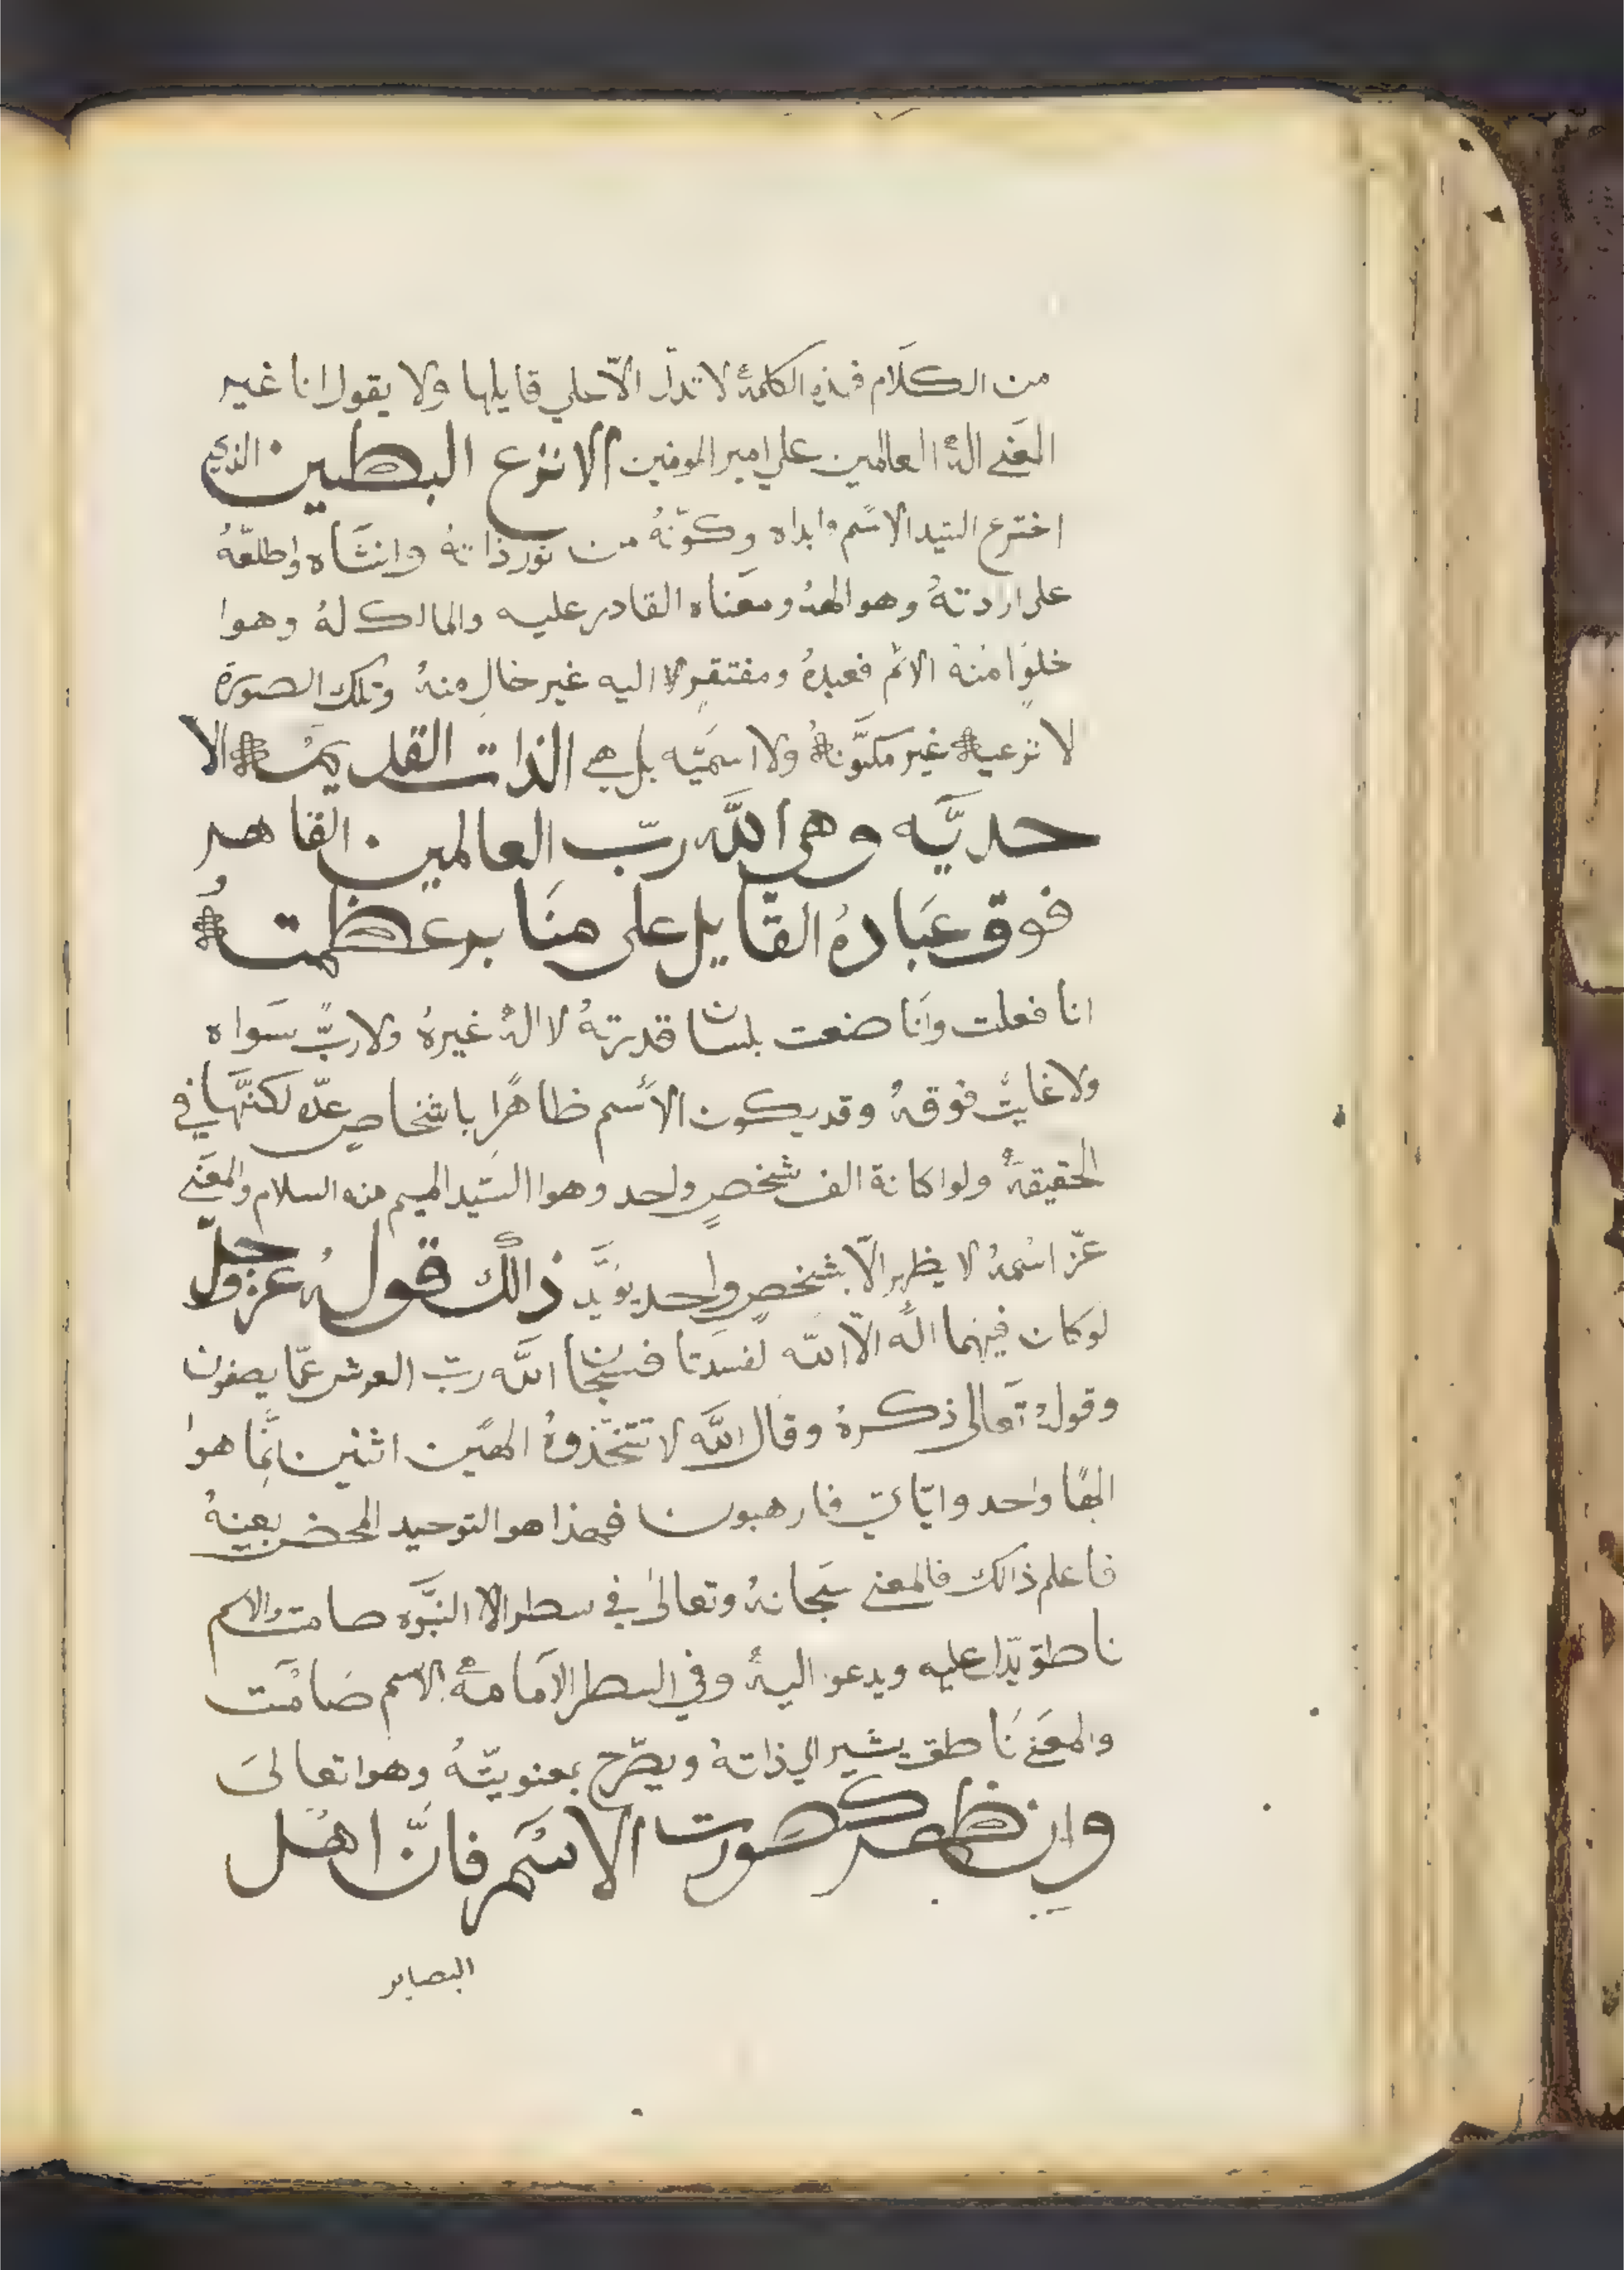 من الكلام فهذه الكلمة لا تدل الا علي قايلها ولا يقول انا غير
المعَني الهُ العالمين علي امير المومنين الانزع البطين الذي
اخترع السيد الاسم وابداه وكوّنهُ من نور ذاتهُ وانشاه واطلعهُ
على ارادتهُ وهو الههُ ومعَناه القادر عليه والمالك لهُ وهوا
خلوًا منهُ الاسم فعبدهُ ومفتقرٍ الا اليه غير خالٍ منهُ وتلك الصورة
لا نزعية غير مكوّنة ولا اسميّه بل هي الذات القديمة الا
حديّه وهي اللّه ربّ العالمين القاهر
فوق عَبادهُ القايل على منَابر عظمتهُ
انا فعلت وانا صنعت بلسان قدرتهُ لا الهُ غيرهُ ولا ربًّ سَواه
ولا غايتً فوقهُ وقد يكون الأسم ظاهرًا باشخاص عدّه لكنَّها في
الحقيقةُ ولوا كانة الف شخصٍ واحد وهوا السَيد الميم منه السلام والمعَني
عزّ اسْمهُ لا يظهر الّا بشخصٍ واحد يويَّد ذالك قولهُ عزوجلّ
لوكان فيهما الهُ الّا اللّه لفسدتا فسبحان اللَّه ربّ العرش عمّا يصفون
وقولهُ تَعالى ذكرهُ وقال اللَّه لا تتخذوهُ الهَين اثنين انَّما هوا
الهًا واحد وايّاي فارهبون فهذا هو التوحيد المحض بعينهُ
فاعلم ذالك فالمعني سَبحانهُ وتعالى في سطر الا النبَّوه صامت والاسم
ناطق يدّل عليه ويدعو اليهُ وفي السطر الامَامهُ الاسم صَامَت
والمعَني نَاطق يشير الي ذاتهُ ويصّرح بمعنويتّهُ وهوا تعالىَ
وان ظهر كصورت الاسْم فانَّ اهل
البصاير